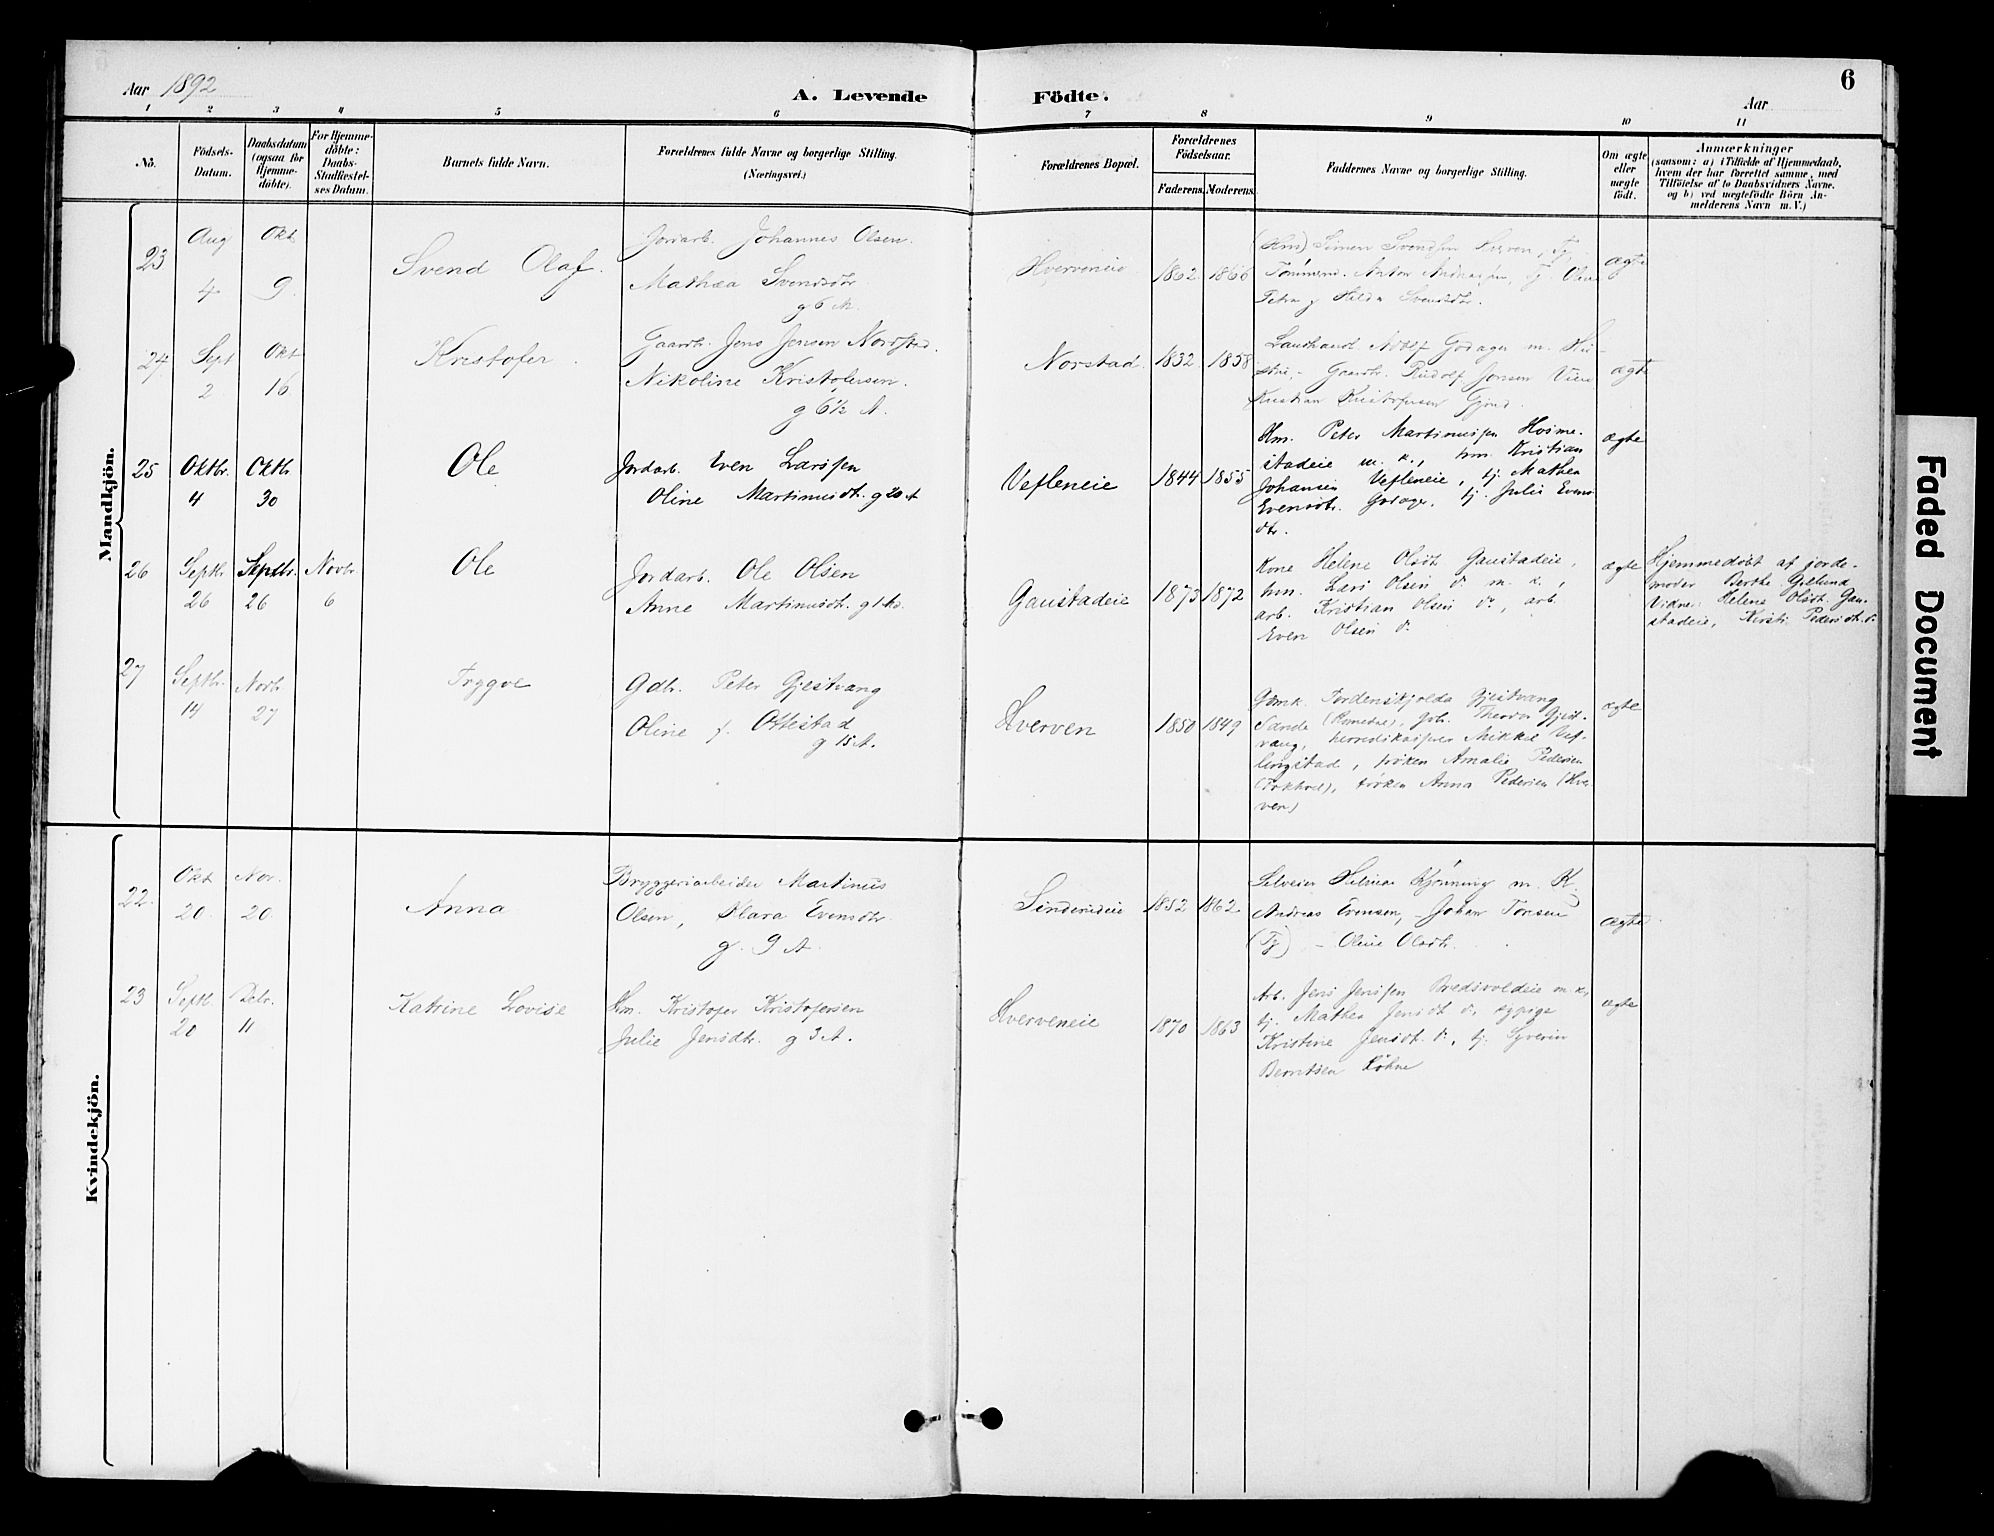 6
Aar 1892
A. Levende Födte.
Aar
1 2 3 4 5 6 7 8 9 10 11
No.
Födsels-
Datum.
Daabsdatum
(ogsaa for
Hjemme-
döbte).
For Hjemme-
döbte:
Daabs-
Stadfæstel-
ses Datum.
Barnets fulde Navn.
Forældrenes fulde Navne og borgerlige Stilling.
(Næringsvei.)
Forældrenes Bopæl.
Forældrenes
Födselsaar.
Faderens. Moderens.
Faddernes Navne og borgerlige Stilling.
Om ægte
eller
uægte
födt.
Anmærkninger
(saasom: a) i Tilfælde af Hjemmedaab,
hvem der har forrettet samme, med
Tilföielse af to Daabsvidners Navne.
og b) ved uægtefödte Börn An-
melderens Navn m. V.)
Mandkjön.
23
Aug
4
Okt
9
Svend Olaf.
Jordarb. Johannes Olsen.
Mathea Svendsdtr.
g 6 M.
Hverveneie
1862 1866
(Hm) Simen Svendsen Hverven, Tj.
Tømmerm. Anton Andreasen, Tj.
Petra g Hilda Svendsdtr.
ægte
24
Sept
2
Okt
16
Kristofer.
Gaardbr. Jens Jensen Norstad.
Nikoline Kristofersen.
g 6½ A.
Norstad.
1832 1858
Landhandl. Adolf Godager m. Hu-
stru, - Gaardbr. Rudolf Jensen
Kristian Kristofersen
ægte
25
Oktbr.
4
Oktbr.
30
Ole
Jordarb. Even Larssen
Oline Martinusdtr. g 20 A
Vefleneie
1844 1855
Hm. Peter Martinussen Hosme-
stadeie m. k., hm. Kristian
Johansen Vefleneie, tj. Mathea
Evensdtr. Godager, tj. Julie Evens
dtr.
ægte
26
Septbr.
26
Septbr.
26
Novbr.
6
Ole
Jordarb. Ole Olsen
Anne Martinusdtr. g 1 M.
Gaustadeie
1873 1872
Kone Helene Olsdt. Gaustadeie,
hm. Lars Olsen do m. k.,
arb. Kristian Olsen do, arb.
Even Olsen do.
ægte
Hjemmedøbt af jorde-
moder Berthe Gjelund
Vidner Helene Olsdt. Gau-
stadeie, Kirsti Pedersdt. do
27
Septbr.
14
Novbr.
27
Trygve
Gdbr. Peter Gjestvang
Oline f. Ottestad
g 15 A.
Hverven
1850 1849
Gdmk. Tordenskjolda Gjestvang
Sande (Romedal), gdb. Thorvor Gjest-
vang, herredskasserer Mikkel Vef-
lingstad, frøken Amalie Pedersen
frøken Anna Pedersen (Hver-
ven)
ægte
Kvindekjön.
22.
Okt
20.
Nov.
20.
Anna
Bryggeriarbeider Martinus
Olsen, Klara Evensdtr.
g. 9 A.
Sinderudeie
1852 1862
Hilmar Kjønning m. K.
Andreas Evensen, - Johan Tonsen
(Tj) - Oline Olsdtr.
ægte.
23
Septbr.
20
Debr.
11
Katrine Lovise
Hm. Kristofer Kristofersen
Julie Jensdtr. g 3 A.
Hverveneie
1870 1863
Arb. Jens Jenssen Bredsvoldeie m. k,
tj. Mathea Jensdt do, sypige
Kristine Jensdt. do, tj. Syverin
Berntsen Løhne
ægte
Faded Document